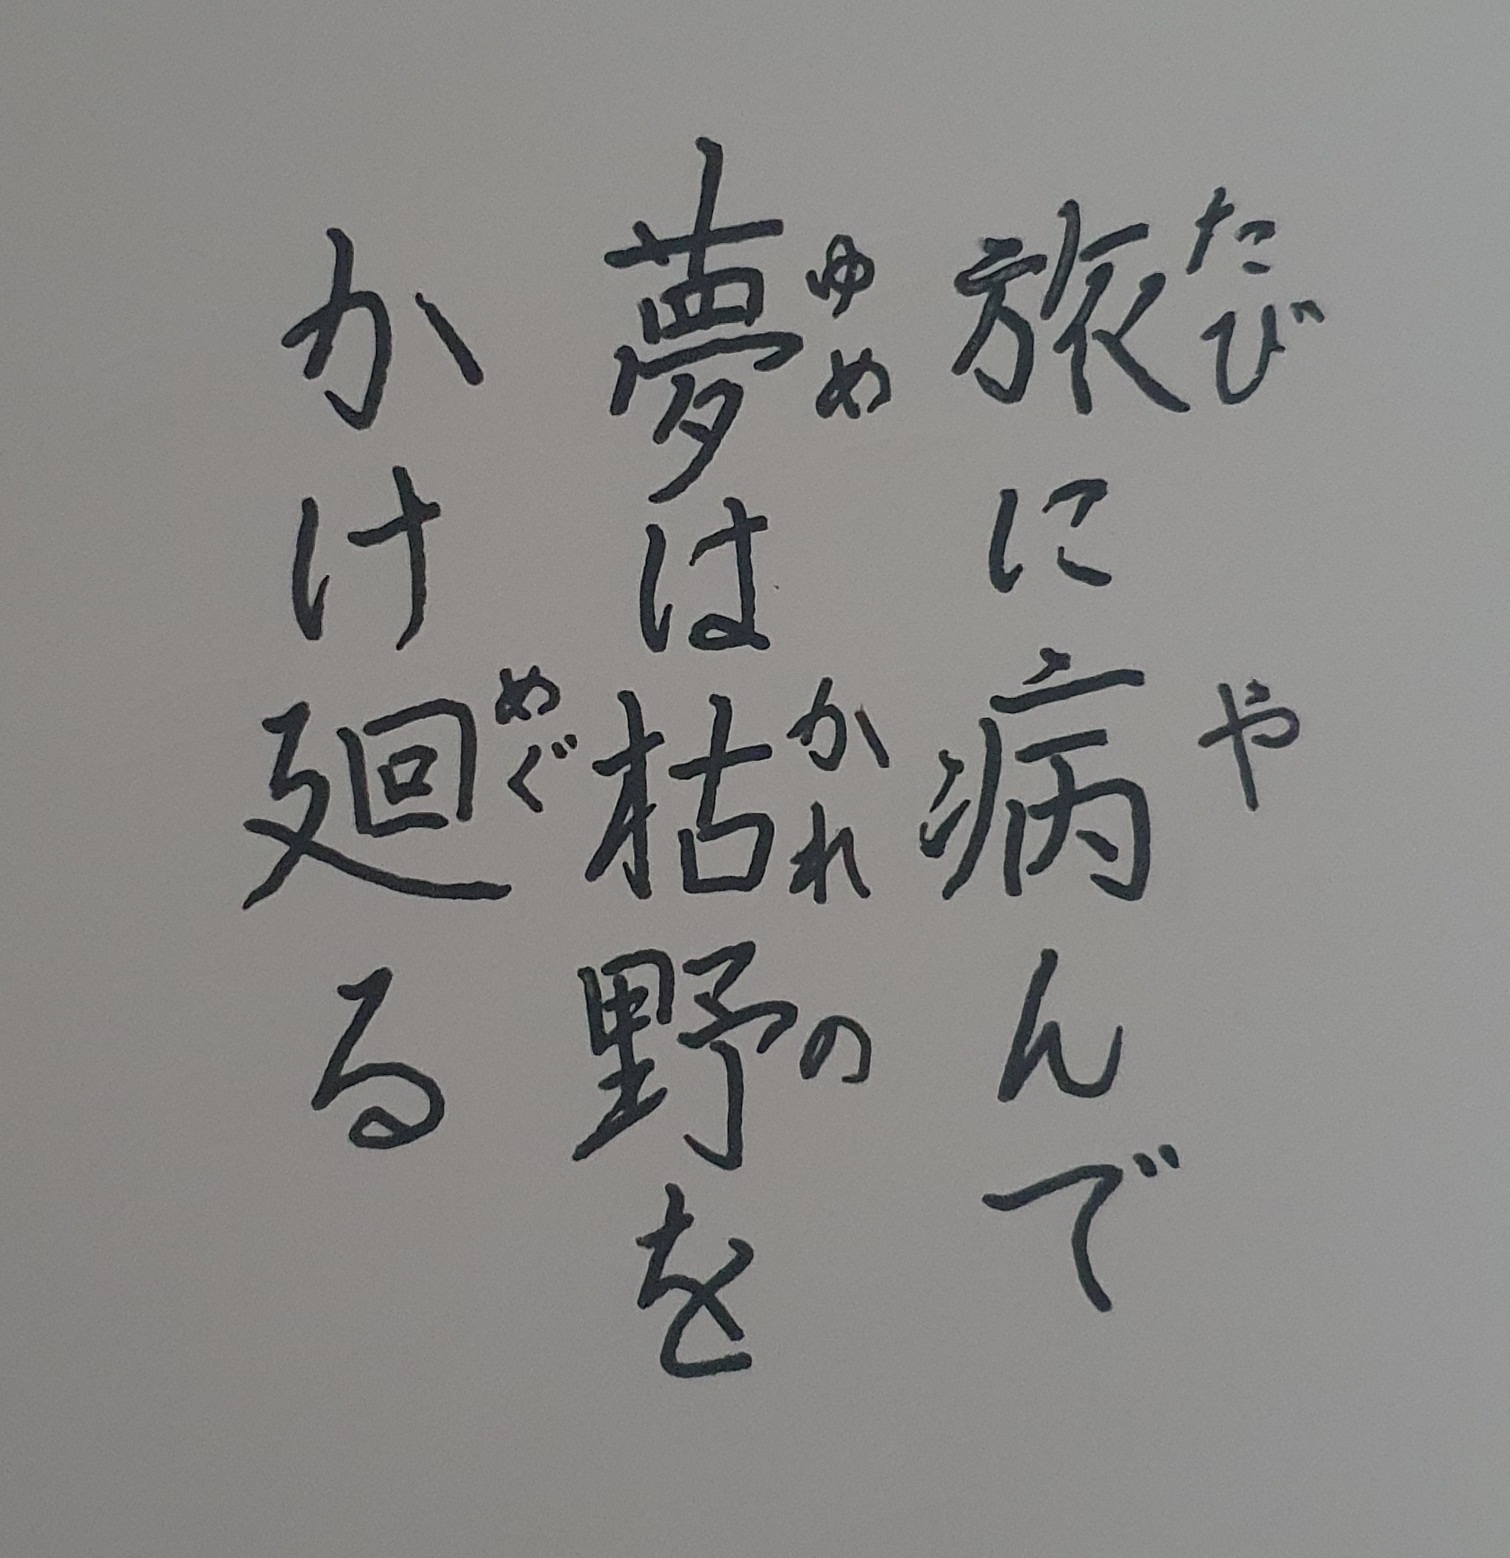 旅に病んで
たびや
夢は枯野を
ゆめかれの
かけ廻る
めぐ